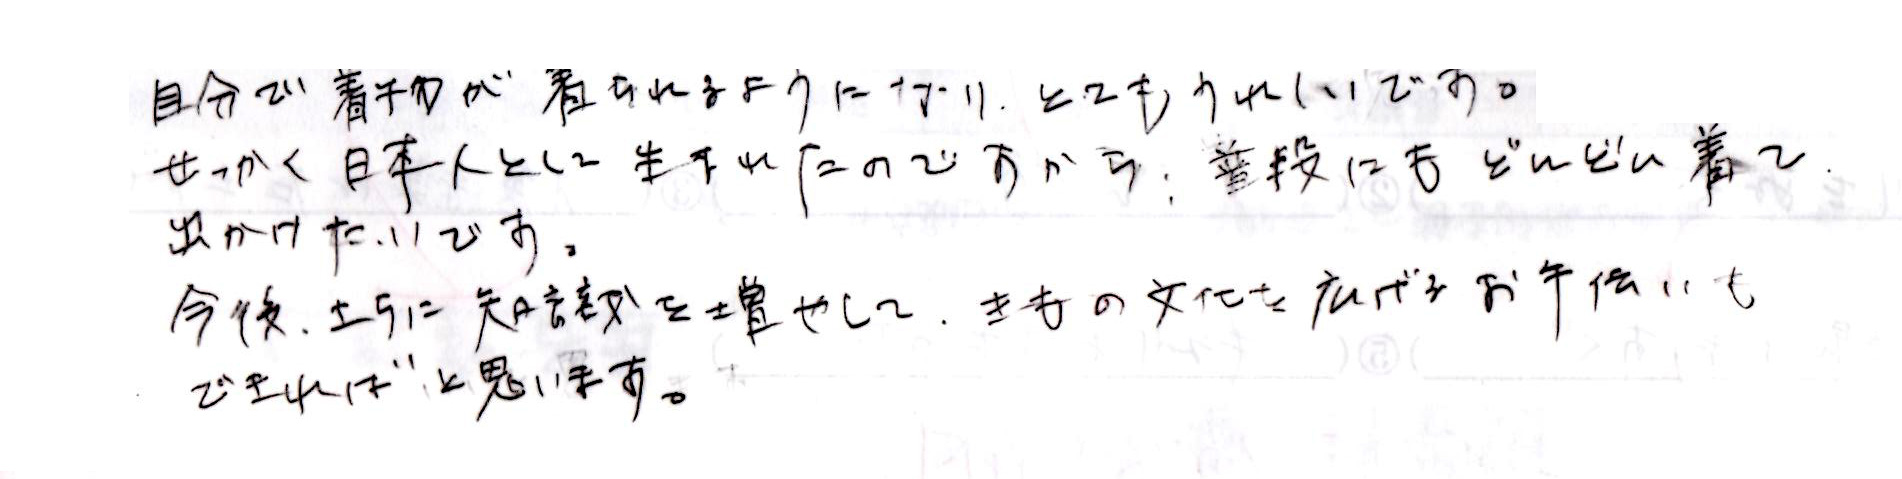 自分で着物が着られるようになり、とてもうれしいです。
せっかく日本人として生まれたのですから、普段にもどんどん着て
出かけたいです。
今後、さらに知識を増やして、きもの文化を広げるお手伝いも
できれば、と思います。